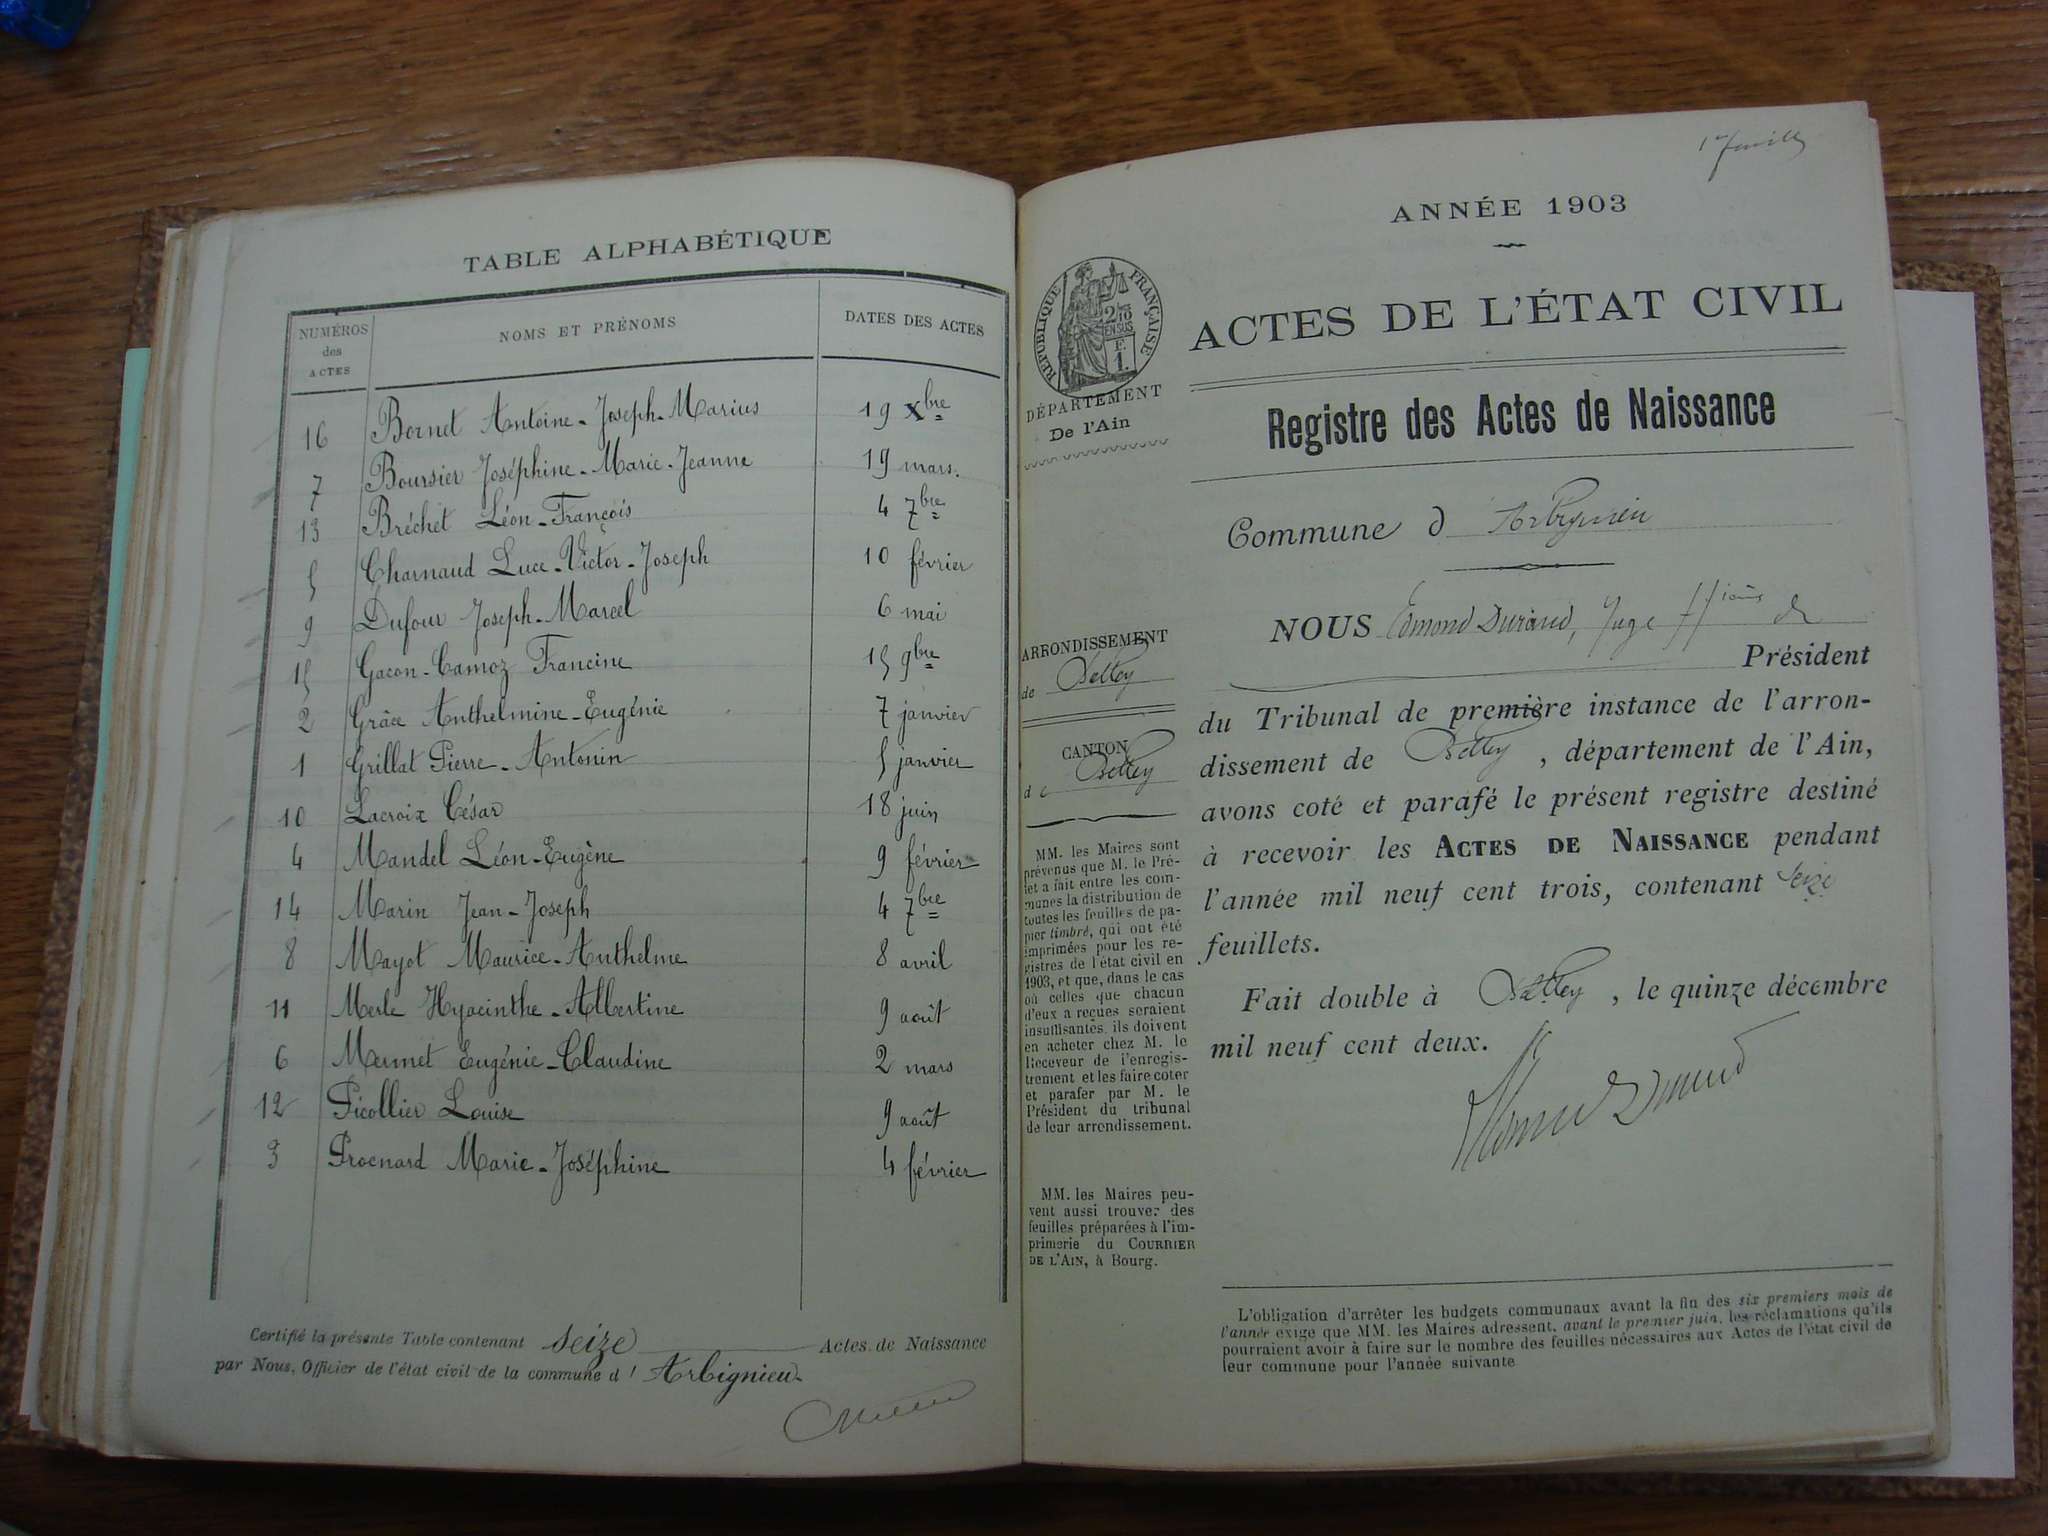 TABLE ALPHABÉTIQUE
NUMÉROS des ACTES NOMS ET PRÉNOMS DATES DES ACTES
16 Bornet Antoine-Joseph-Marius 19 Xbre
7 Boursier Joséphine-Marie-Jeanne 19 mars.
13 Bréchet Léon-François 4 7bre
5 Charnaud Luce-Victor-Joseph 10 février
9 Dufour Joseph-Marcel 6 mai
15 Gacon-Camoz Francine 15 9bre
2 Grâce Anthelmine-Eugénie 7 janvier
1 Grillat Pierre-Antonin 5 janvier
10 Lacroix César 18 juin
4 Mandel Léon-Eugène 9 février
14 Marin Jean-Joseph 4 7bre
8 Mayot Maurice-Anthelme 8 avril
11 Merle Hyacinthe-Albertine 9 août
6 Mermet Eugénie-Claudine 2 mars
12 Picollier Louise 9 août
3 Procnard Marie-Joséphine 4 février
Certifié la présente Table contenant seize Actes de Naissance
par Nous, Officier de l'état civil de la commune d' Arbignieu
ANNÉE 1903
RÉPUBLIQUE FRANÇAISE
2/10
EN SUS
F.
1.
DÉPARTEMENT
De l'Ain
ARRONDISSEMENT
de Belley
CANTON
de Belley
MM. les Maires sont
prévenus que M. le Pré-
fet a fait entre les com-
munes la distribution de
toutes les feuilles de pa-
pier timbré, qui ont été
imprimées pour les re-
gistres de l'état civil en
1903, et que, dans le cas
où celles que chacun
d'eux a reçues seraient
insuffisantes, ils doivent
en acheter chez M. le
Receveur de l'enregis-
trement et les faire coter
et parafer par M. le
Président du tribunal
de leur arrondissement.
MM. les Maires peu-
vent aussi trouver des
feuilles préparées à l'im-
primerie du COURRIER
DE L'AIN, à Bourg.
ACTES DE L'ÉTAT CIVIL
Registre des Actes de Naissance
Commune d' Arbignieu
NOUS Edmond Durand, Juge de
Président
du Tribunal de première instance de l'arron-
dissement de Belley, département de l'Ain,
avons coté et parafé le présent registre destiné
à recevoir les ACTES DE NAISSANCE pendant
l'année mil neuf cent trois, contenant seize
feuillets.
Fait double à Belley, le quinze décembre
mil neuf cent deux.
Durand
L'obligation d'arrêter les budgets communaux avant la fin des six premiers mois de
l'année exige que MM. les Maires adressent, avant le premier juin, les réclamations qu'ils
pourraient avoir à faire sur le nombre des feuilles nécessaires aux Actes de l'état civil de
leur commune pour l'année suivante